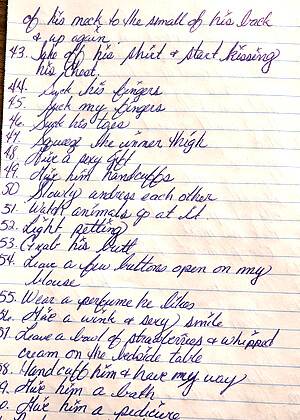 of his neck to the small of his back
& up again
43. Take of his shirt & start kissing
his chest.
44. Suck his fingers
45. Suck my fingers
46. Suck his toes
47. squeeze the inner thigh
48. Give a sexy gift
49. Give him handcuffs
50 Slowly undress each other
51. Watch animals go at it
52. Light petting
53. Grab his butt
54. Leave a few buttons open on my
blouse
55. Wear a perfume he likes
56. Give a wink & sexy smile
57. Leave a bowl of strawberries & whipped
cream on the bedside table
58. Handcuff him & have my way
9. Give him a bath
0. Give him a pedicure